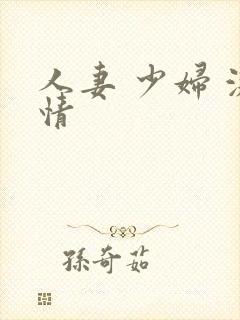 人妻 少婦
情
孫奇茹